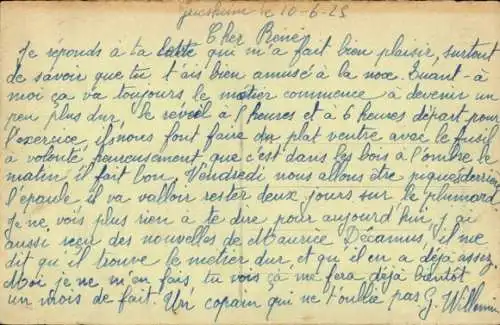 le 10-6-25
Cher René
Je réponds à ta lettre qui m'a fait bien plaisir, surtout
de savoir que tu t'ais bien amusé à la noce. Quant-à
moi ça va toujours le métier commence à devenir un
peu plus dur, le réveil à heures et à 6 heures départ pour
l'exercice, ils nous font faire du plat ventre avec le fusil
à volonté, heureusement que c'est dans les bois à l'ombre le
matin il fait bon. Vendredi nous allons être piqués derrière
l'épaule il va valloir rester deux jours sur le plumard
Je ne vois plus rien à te dire pour aujourd'hui, j'ai
aussi reçu des nouvelles de Maurice Décamus, il me
dit qu'il trouve le métier dur, et qu'il en a déjà assez,
Moi je ne m'en fais, tu vois ça me fera déjà bientôt
un mois de fait. Un copain qui ne t'oublie pas G. Willemin